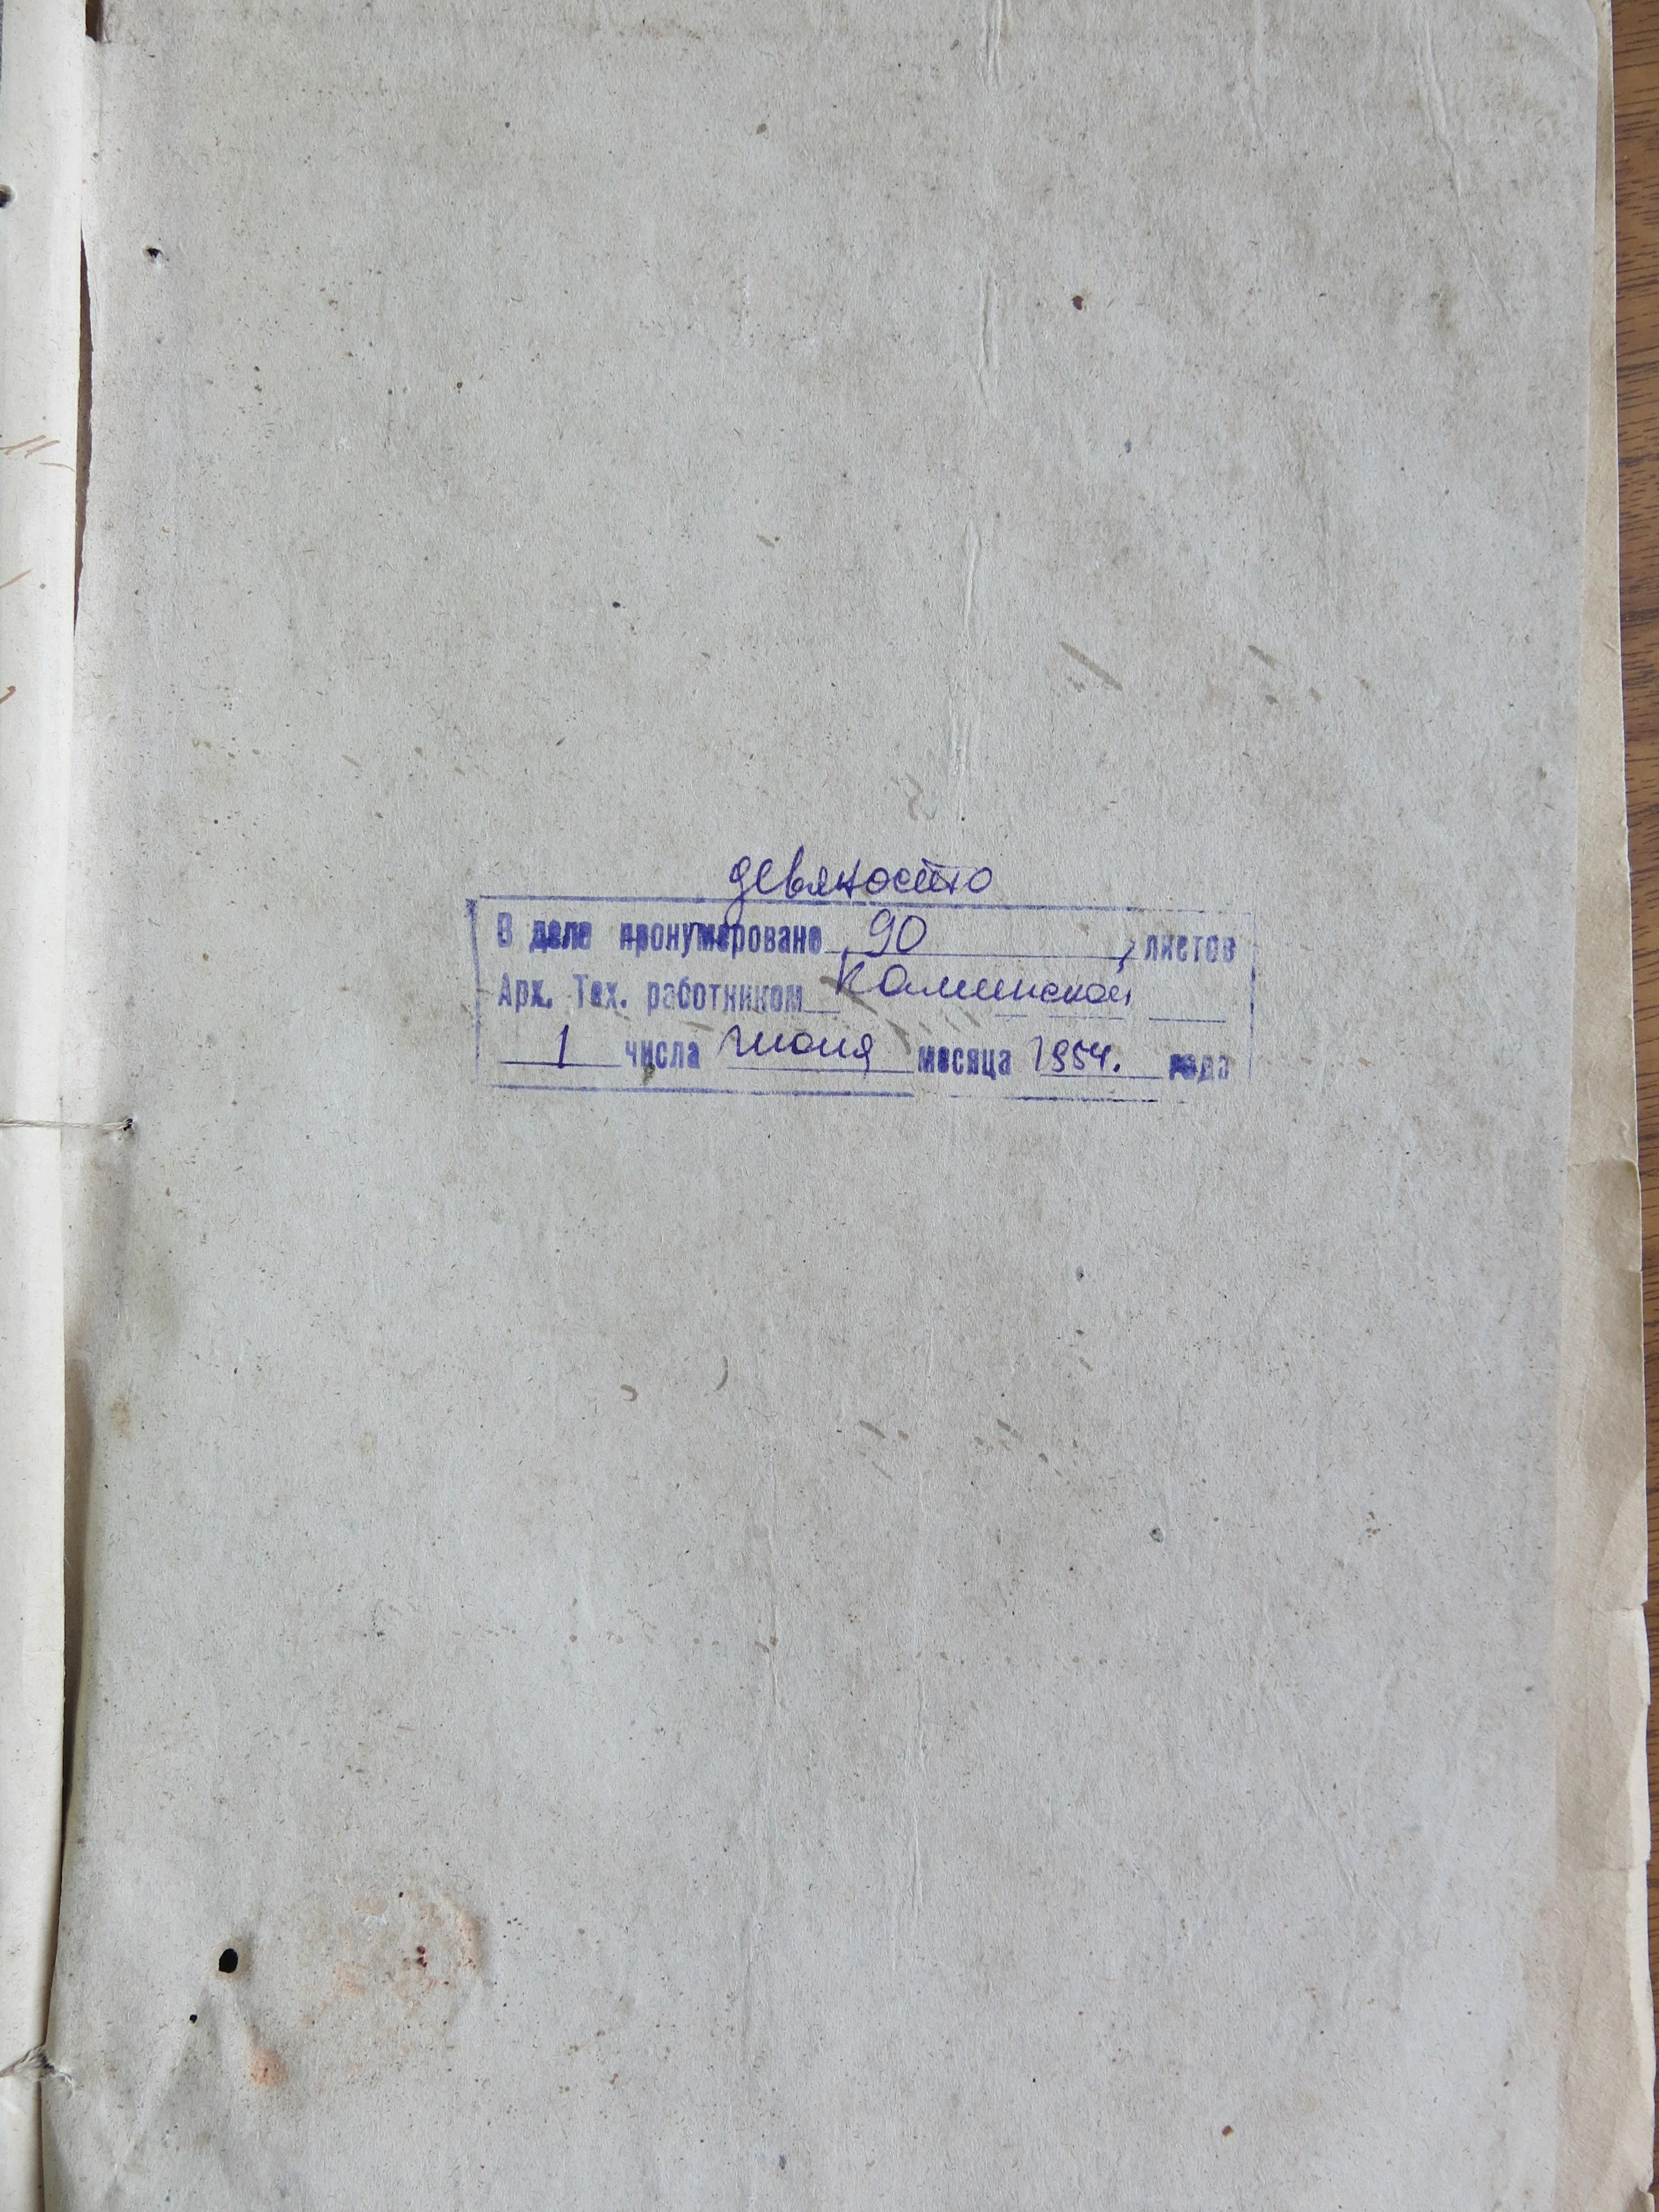 девяносто
В деле пронумеровано 90 листов
Арх. Тех. работником Каминской
1 числа июня месяца 1954. года